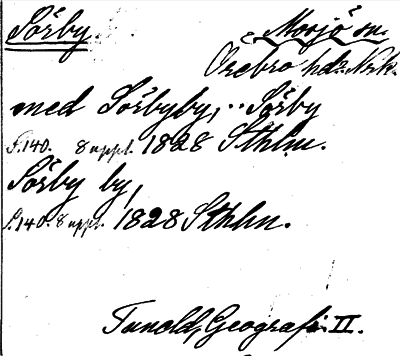 Sörby. Mosjö sn.
Örebro hd. Nrk.
med Sörbyby, Sörby
S.140. 8 uppl. 1828 Sthlm.
Sörby by,
S.140. 8 uppl. 1828 Sthlm.
Tuneld, Geografi II.